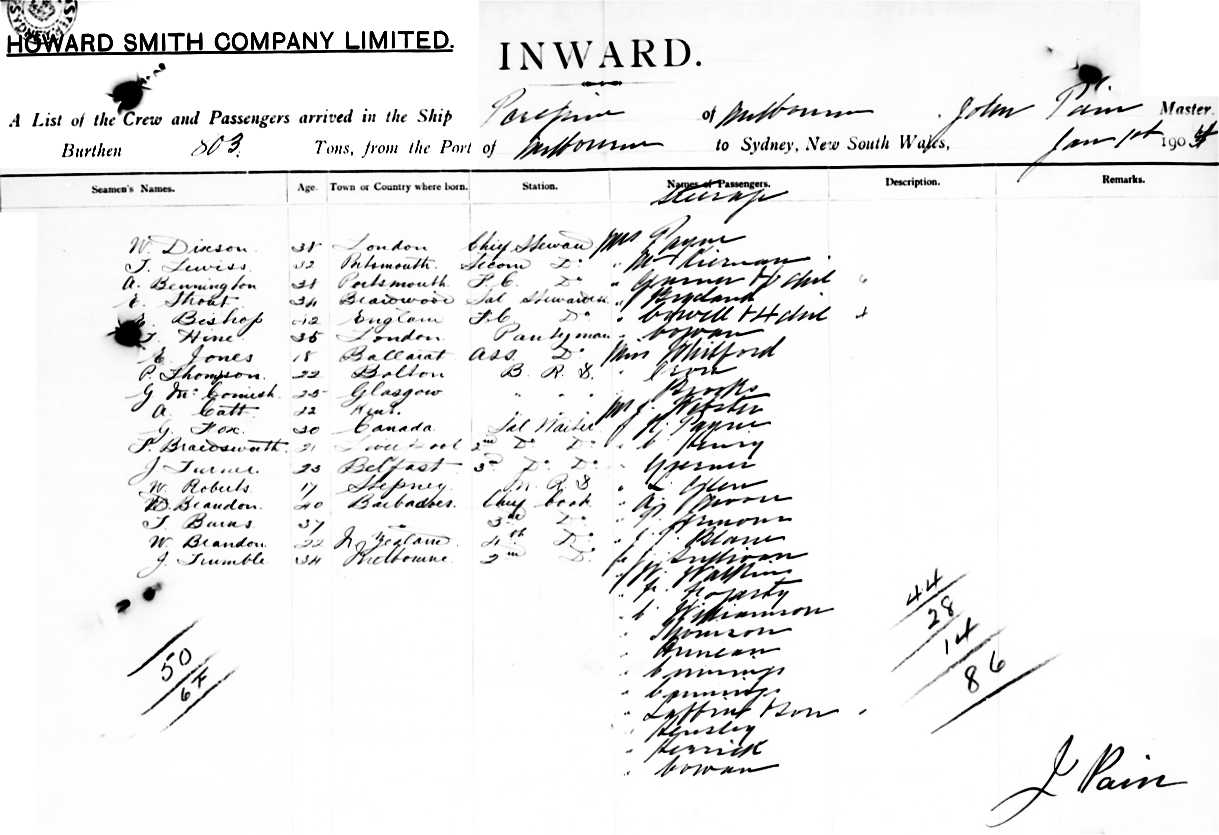 SYDNEY
HOWARD SMITH COMPANY LIMITED.
INWARD.
A List of the Crew and Passengers arrived in the Ship Peregrine of Melbourne, John Pain Master.
Burthen 803 Tons, from the Port of Melbourne to Sydney, New South Wales, Jan 1st 1904
Seamen's Names. Age. Town or Country where born. Station. Names of Passengers. Description. Remarks.
Steerage
W. Dixson 38 London Chief Steward Mrs Payne
T. Lewiss 32 Portsmouth Second Do " McKiernan
A. Bennington 31 Portsmouth F.C. Do " & chil
E. Trout 34 Braidwood Sal Stewardess "
E. Bishop England F.C Do " & 4 chil
T. Hine 35 London Pantryman " Cowan
E. Jones 18 Ballarat Ass. Do Miss Whitford
P. Thompson 22 Bolton B. R. S. "
G. McComish 25 Glasgow " " " Brooks
A. Catt Kent. Mr J. Webster
G. Fox 30 Canada Sal Waiter " Payne
P. Braidsworth 21 Liverpool 2nd Do Do " Henry
J. Turner 23 Belfast 3rd Do Do "
W. Roberts 17 Stepney M. R. S "
W. Brandon 40 Barbadoes Chief Cook " Moore
T. Burns 37 3rd Do "
W. Brandon 22 N. Zealand 4th Do " Blane
J. Trumble 34 Melbourne 2nd Do Sullivan
" W. Watkins
" Fogarty
" Williamson
" Thomson
" Duncan
" Cummings
" Cummings
" & Son
" Hensley
" Herrick
" Cowan
50
64
44
28
14
86
J Pain